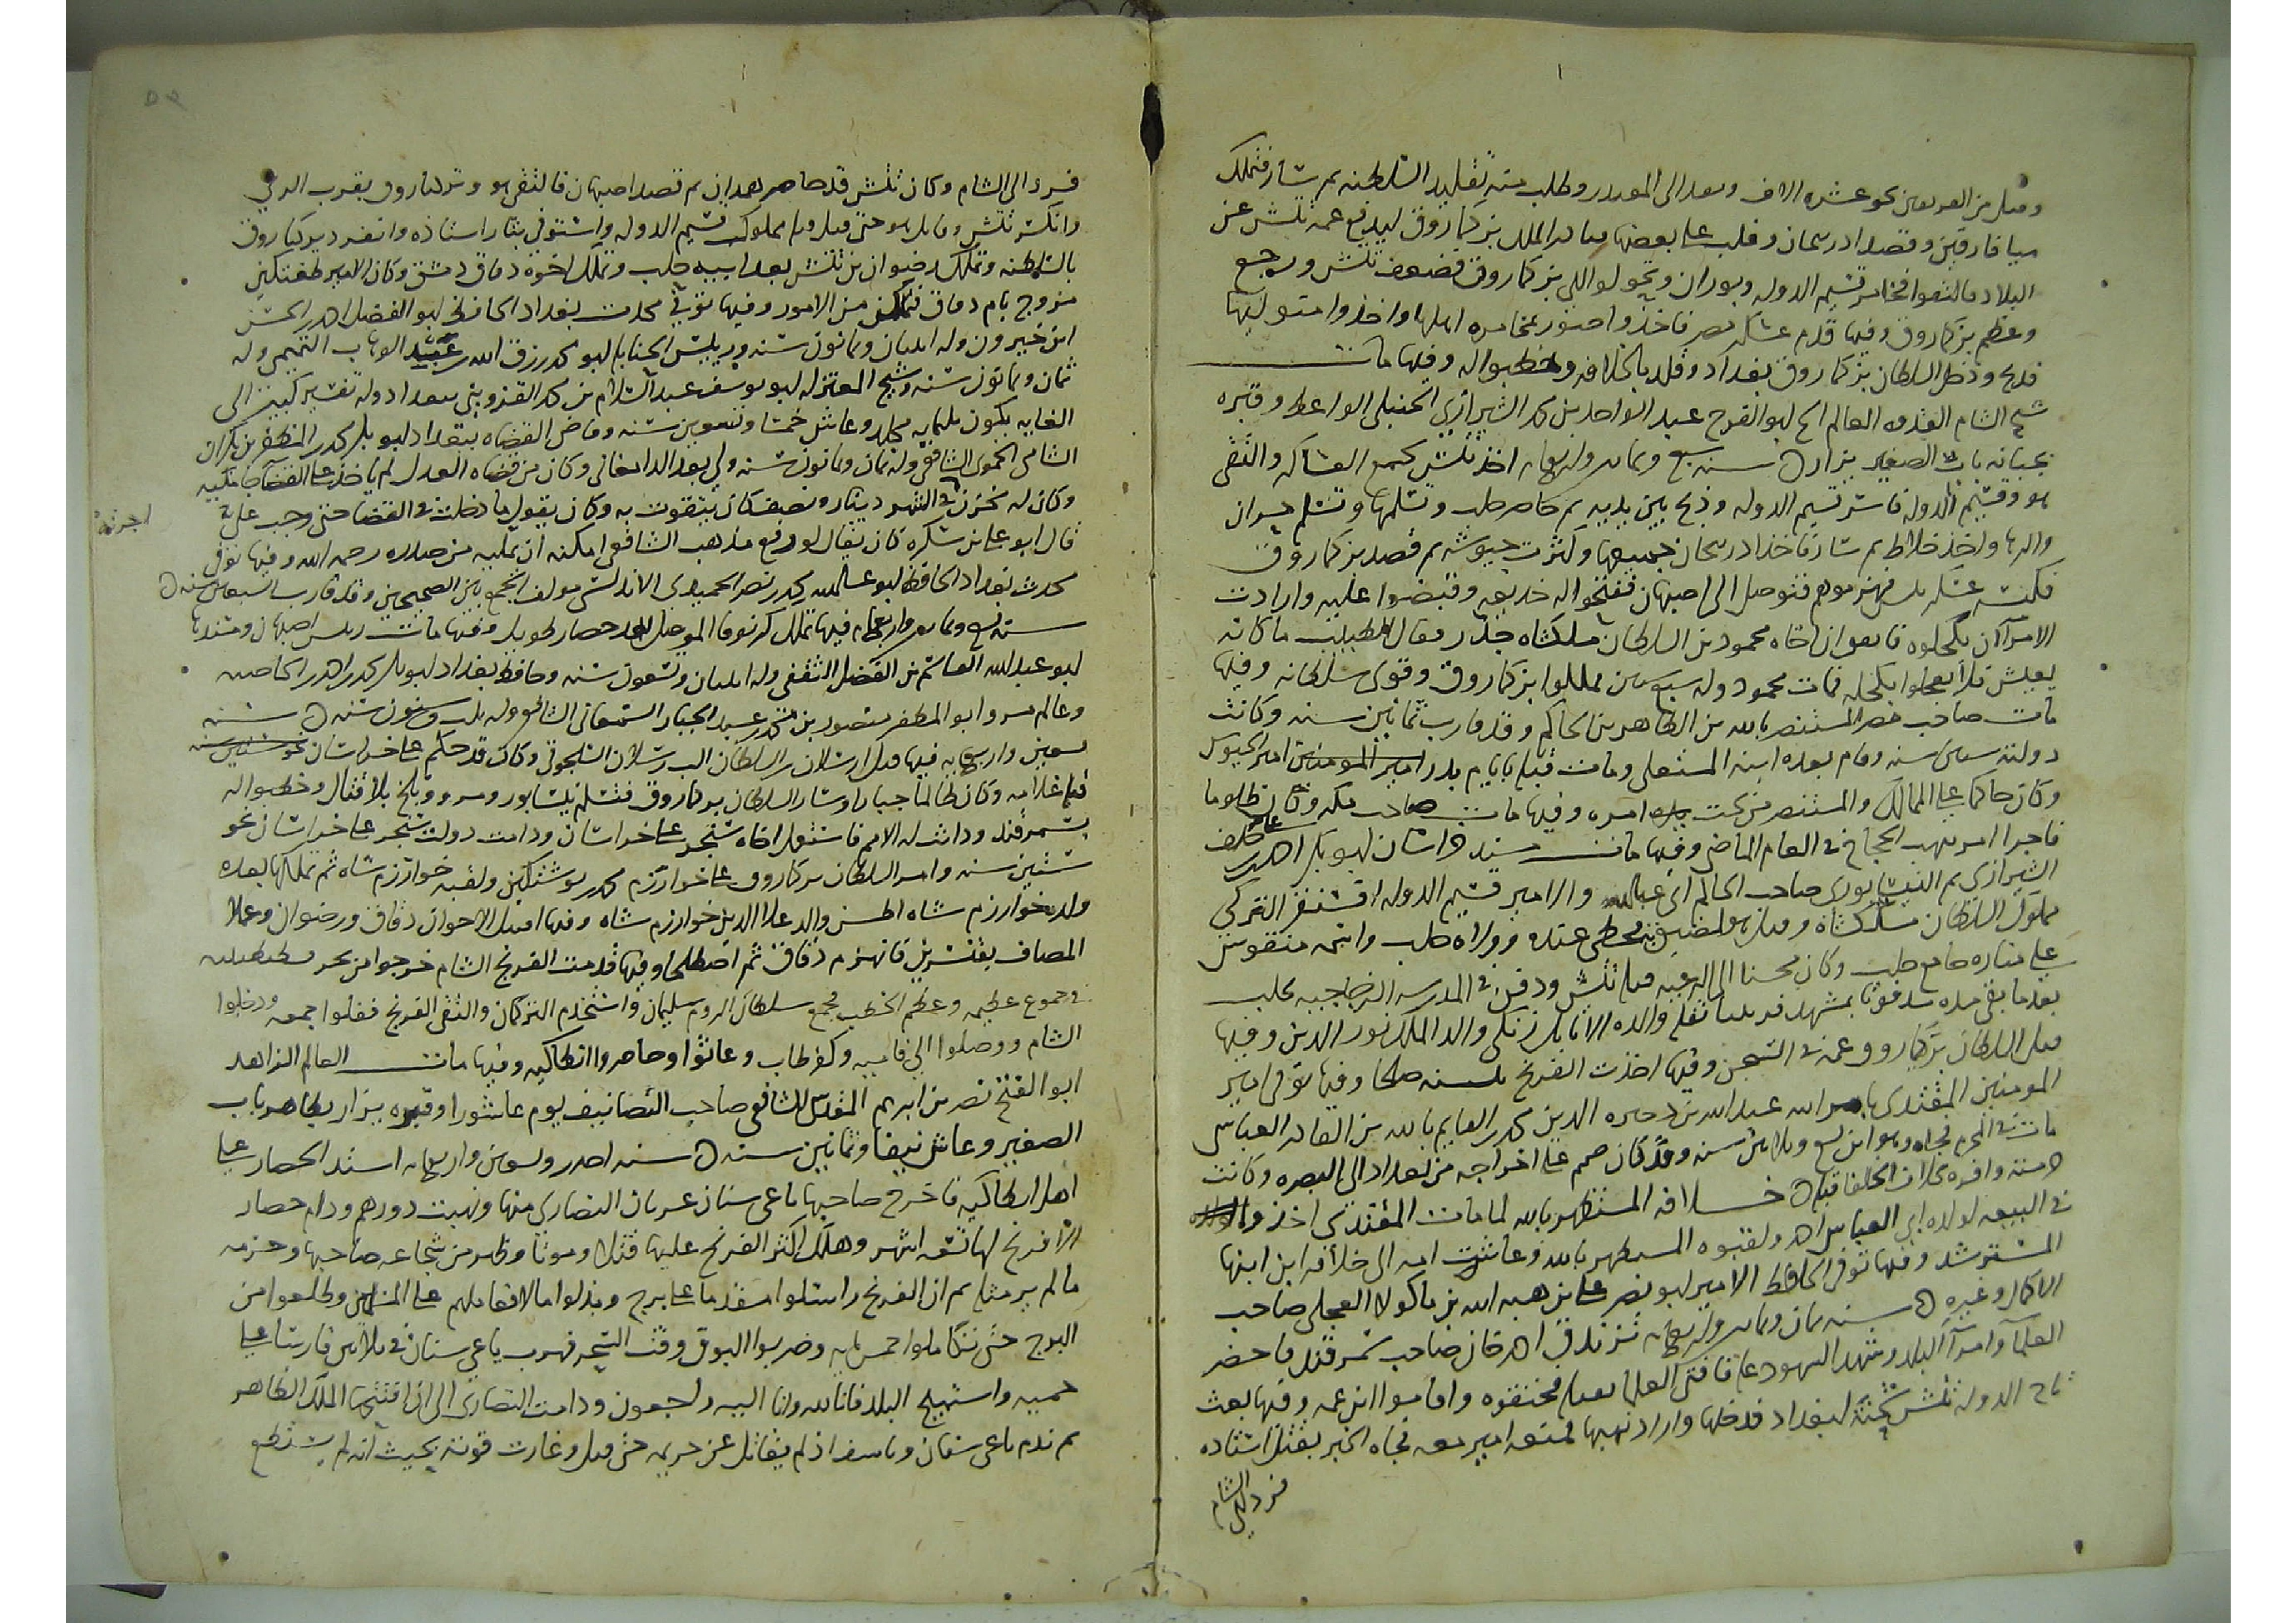 وقتل من الفريقين نحو عشرة الاف وبعث الى المقتدر وطلب منه تقليد السلطنه ثم سار فتملك
ميافارقين وقصد اذربيجان وغلب على بعضها فبادر الملك بركياروق ليدفع عمه تتش عن
البلاد فالتقوا فخامر قسيم الدوله وبوزان وتحولوا الى بركياروق فضعف تتش ورجع
وعظم بركياروق وفيها قدم عسكر مصر فاخذوا صور بمخامره اهلها واخذوا متوليها
فذبح ودخل السلطان بركياروق بغداد وقلد بالخلافه وخطبوا له وفيها مات
شيخ الشام القدوه العالم ابو الفرج عبد الواحد بن محمد الشيرازي الحنبلي الواعظ وقبره
بجبانه باب الصغير يزار سنه سبع وثمانين واربعمايه اخذ تتش يجمع العساكر والتقى
هو وقسيم الدوله فاسر قسيم الدوله وذبح بين يديه ثم حاصر حلب وتسلمها وتسلم حران
والرها واخذ خلاط ثم سار فاخذ اذربيجان جميعها وكثرت جيوشه ثم قصد بركياروق
فكبس عسكر تتش فهزموهم فتوصل الى اصبهان ففتحوا له خديعه وقبضوا عليه وارادت
الامرآ ان يكحلوه فاتفق ان اخاه محمود بن السلطان ملكشاه جدر فقال الطبيب ما كانه
يعيش فلا تعجلوا بكحله فمات محمود وله سبع سنين فملكوا بركياروق وقوي سلطانه وفيها
مات صاحب مصر المستنصر بالله بن الظاهر بن الحاكم وقد قارب ثمانين سنه وكانت
دولته ستين سنه وقام بعده ابنه المستعلى ومات قبله بايام بدر امير الجيوش
وكان حاكما على الممالك والمستنصر من تحت امره وفيها مات صاحب مكه وكان ظلوما
فاجرا امر بنهب الحجاج في العام الماضي وفيها مات مسند خراسان ابو بكر احمد بن علي بن خلف
الشيرازي ثم النيسابوري صاحب الحاكم ابي عبدالله والامير قسيم الدوله اقسنقر التركي
مملوك السلطان ملكشاه وقيل هو لصيق به فحظي عنده وولاه حلب واسمه منقوش
على مناره جامع حلب وكان محسنا الى الرعيه قتله تتش ودفن في المدرسه الزجاجيه بحلب
بعد ما بقي مده مدفونا بمشهد قرنبيا نقله ولده الاتابك زنكي والد الملك نور الدين وفيها
قتل السلطان بركياروق عمه في السجن وفيها اخذت الفرنج بلنسيه صلحا وفيها توفي امير
المومنين المقتدي بامر الله عبد الله بن ذخيره الدين محمد بن القايم بالله بن القادر العباسي
مات في المحرم فجاه وهو ابن تسع وثلاثين سنه وقد كان صمم على اخراجه من بغداد الى البصره وكانت
حرمته وافره بخلاف الخلفا قبله خلافه المستظهر بالله لما مات المقتدي اخذوا
في البيعه لولده ابي العباس احمد ولقبوه المستظهر بالله وعاشت امه الى خلافه ابن ابنها
المسترشد وفيها توفي الحافظ الامير ابو نصر علي بن هبه الله بن ماكولا العجلي صاحب
الاكمال وغيره سنه ثمان وثمانين واربعمايه تزندق احمد خان صاحب سمرقند فاحضر
العلمآ وامرآ البلد وشهد الشهود عليه فافتى العلما بقتله فخنقوه واقاموا ابن عمه وفيها بعث
تاج الدوله تتش شحنه لبغداد فدخلها واراد نهبها فمنعه امير معه فجاه الخبر بقتل استاذه
فرد الى الشام
فرد الى الشام وكان تتش قد حاصر همدان ثم قصد اصبهان فالتقى هو وبركياروق بقرب الري
وانكسر تتش وقاتل هو حتى قتل وله مملوك قسيم الدوله واستوفى بثار استاذه وانفرد بركياروق
بالسلطنه وتملك رضوان بن تتش بعد ابيه حلب وتملك اخوه دقاق دمشق وكان الامير طغتكين
مزوج بام دقاق فتمكن من الامور وفيها توفي محدث بغداد الحافظ ابو الفضل احمد بن الحسن
ابن خيرون وله اثنتان وثمانون سنه ورييس الحنابله ابو محمد رزق الله بن عبد الوهاب التميمي وله
ثمان وثمانون سنه وشيخ المعتزله ابو يوسف عبد السلام بن محمد القزويني ببغداد وله تفسير كبير الى
الغايه يكون ثلثمايه مجلد وعاش خمسا وتسعين سنه وقاضي القضاه ببغداد ابو بكر محمد بن المظفر بن بكران
الشامي الحموي الشافعي وله ثمان وثمانون سنه ولي بعد الدامغاني وكان من قضاه العدل لم ياخذ على القضا جامكيه
وكان له مخزن في الشهر دينار ونصف كان يتقوت به وكان يقول ما دخلت في القضا حتى وجب علي
اجرته
قال ابو علي بن سكره كان يقال لو رفع مذهب الشافعي امكنه ان يمليه من صدره رحمه الله وفيها توفي
محدث بغداد الحافظ ابو عبد الله محمد بن نصر الحميدي الاندلسي مولف الجمع بين الصحيحين وقد قارب السبعين سنه
سنه تسع وثمانين واربعمايه فيها تملك كربوقا الموصل بعد حصار طويل وفيها مات رييس اصبهان ومسندها
ابو عبد الله القاسم بن الفضل الثقفي وله اثنتان وتسعون سنه وحافظ بغداد ابو بكر محمد بن احمد بن الخاضبه
وعالم مرو ابو المظفر منصور بن محمد بن عبد الجبار السمعاني الشافعي وله ثلث وستون سنه سنه
تسعين واربعمايه فيها قتل ارسلان بن السلطان الب رسلان السلجوقي وكان قد حكم على خراسان
قتله غلامه وكان ظالما جبارا وسار السلطان بركياروق فتسلم نيسابور ومرو وبلخ بلا قتال وخطبوا له
بسمرقند ودانت له الامم فاستعمل اخاه سنجر على خراسان ودامت دولت سنجر على خراسان نحو
ستين سنه وامر السلطان بركياروق على خوارزم محمد بن نوشتكين ولقبه خوارزم شاه ثم تملكها بعده
ولده خوارزم شاه اطسز والد علا الدين خوارزم شاه وفيها اقتتل الاخوان دقاق ورضوان وعملا
المصاف بقنسرين فانهزم دقاق ثم اصطلحا وفيها قدمت الفرنج الشام خرجوا من بحر قسطنطينيه
في جموع عظيمه وعظم الخطب فجمع سلطان الروم سليمان واستخدم التركمان والتقى الفرنج ففلوا جمعه ودخلوا
الشام ووصلوا الى فاميه وكفرطاب وعاثوا وحاصروا انطاكيه وفيها مات العالم الزاهد
ابو الفتح نصر بن ابرهيم المقدسي الشافعي صاحب التصانيف يوم عاشورا وقبره يزار بظاهر باب
الصغير وعاش نيفا وثمانين سنه سنه احدى وتسعين واربعمايه اشتد الحصار على
اهل انطاكيه فاخرج صاحبها ياغي سنان عربان النصاري منها ونهبت دورهم ودام حصار
الافرنج لها تسعه اشهر وهلك اكثر الفرنج عليها قتلا وموتا وظهر من شجاعه صاحبها وحزمه
ما لم ير مثله ثم ان الفرنج راسلوا مقدما على برج وبذلوا مالا فعاملهم على المسلمين وطلعوا من
البرج حتى تكاملوا خمسمايه وضربوا البوق وقت السحر فهرب ياغي سنان في ثلاثين فارسا على
حميه واستبيح البلد فانا لله وانا اليه راجعون ودامت النصارى الى ان افتتحها الملك الظاهر
ثم ندم ياغي سنان وتاسف اذ لم يقاتل عن حريمه حتى يقتل وغارت قوته بحيث انه لم يستطع